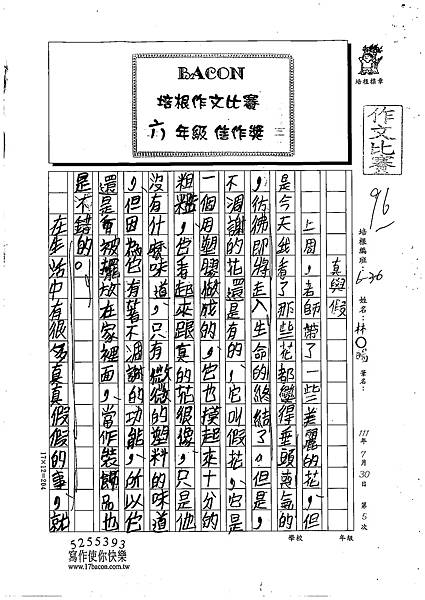 BACON
培根作文比賽
六年級佳作獎
培根標章
作文比賽
96
培根編班 6-36 姓名:林○晞 筆名:
111年7月30日 第5次
學校 年級
真與假
上周,老師帶了一些美麗的花,但
是今天我看了那些花都變得垂頭喪氣的
,彷彿即將走入生命的終結了。但是,
不凋謝的花還是有的,它叫假花,它是
一個用塑膠做成的,它也摸起來十分的
粗糙,它看起來跟真的花很像,只是他
沒有什麼味道,只有微微的塑料的味道
,但因為它有著不凋謝的功能,所以它
還是會被擺放在家裡面,當作裝飾品也
是不錯的。
在生活中有很多真真假假的事,就
17×12=204
5255393
寫作使你快樂
www.17bacon.com.tw